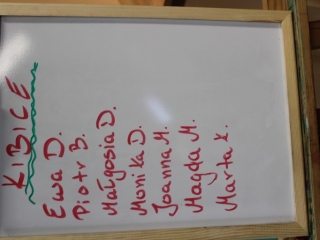 KIBICE
Ewa D.
Piotr B.
Małgosia D.
Monika D.
Joanna M.
Magda M.
Marta K.